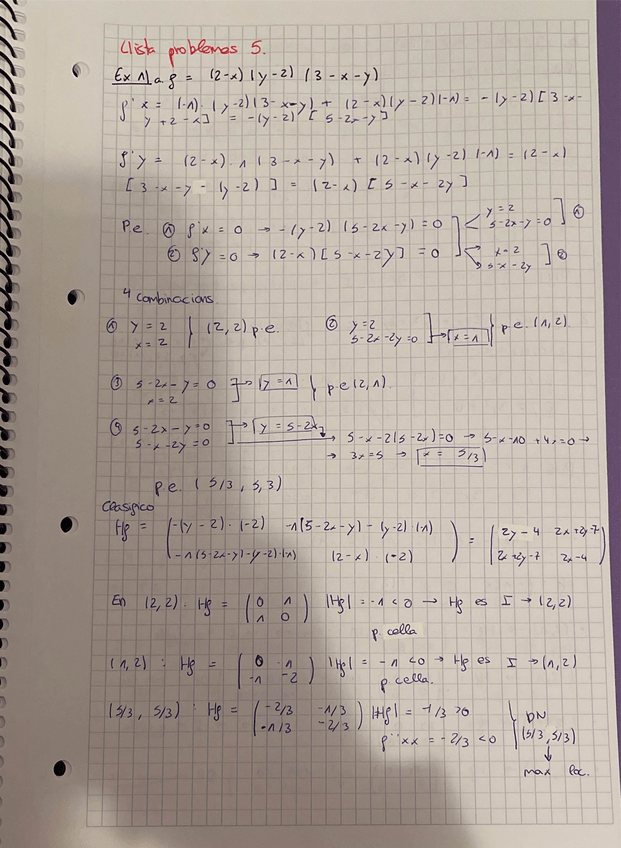 Llista problemas 5.
Ex 1) a f = (2-x) (y-2) (3-x-y)
f'x = (-1) · (y-2)(3-x-y) + (2-x)(y-2)(-1) = -(y-2) [3-x-
y+2-x] = -(y-2) [5-2x-y]
f'y = (2-x) · 1 (3-x-y) + (2-x)(y-2)(-1) = (2-x)
[3-x-y-(y-2)] = (2-x) [5-x-2y]
P.e. ① f'x = 0 → -(y-2) (5-2x-y) = 0 y=2 5-2x-y=0 ] ①
② f'y = 0 → (2-x) [5-x-2y] = 0 x=2 5-x-2y ] ②
4 combinacions
① y=2 x=2 } (2,2) p.e. ② y=2 5-2x-2y=0 ] → x=1 } p.e. (1,2)
③ 5-2x-y=0 x=2 ] → y=1 } p.e (2,1).
④ 5-2x-y=0 ] → y=5-2x
5-x-2y=0 → 5-x-2(5-2x)=0 → 5-x-10+4x=0 →
→ 3x=5 → x = 5/3
p.e. (5/3, 5,3)
Clasifico
Hf = ( -(y-2)·(-2) -1(5-2x-y)-(y-2)(-1) ) = ( 2y-4 2x+2y-7 )
( -1(5-2x-y)-(y-2)·(-1) (2-x)·(-2) ) ( 2x+2y-7 2x-4 )
En (2,2). Hf = ( 0 1 ) |Hf| = -1 < 0 → Hf es I → (2,2)
( 1 0 )
p. cella
(1,2) : Hf = ( 0 -1 ) |Hf| = -1 < 0 → Hf es I → (1,2)
( -1 -2 ) p cella.
(5/3, 5/3) : Hf = ( -2/3 -1/3 ) |Hf| = -1/3 > 0 } DN
( -1/3 -2/3 ) f''xx = -2/3 < 0 (5/3, 5/3)
↓
max loc.